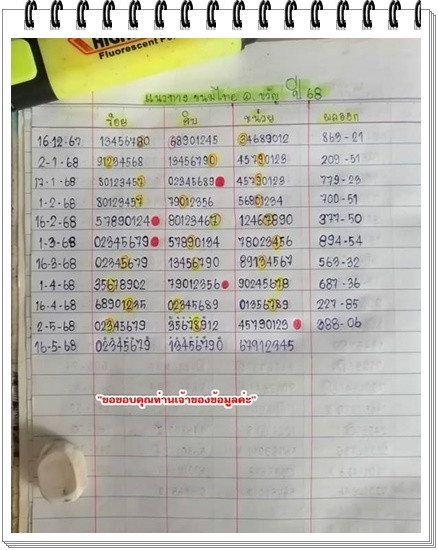 HIGH
Fluorescent Pen
แนวทาง ขนมไทย อ. ขวัญ ปี 68
ร้อย สิบ หน่วย ผลออก
16-12-67 13456780 68901245 34689012 869-21
2-1-68 91234568 13456790 45790123 209-51
17-1-68 80123457 02345689 45790123 779-23
1-2-68 80123457 79012356 56801234 700-51
16-2-68 57890124 80123467 12467890 377-50
1-3-68 02345679 57890134 78023456 894-54
16-3-68 02345679 13456790 89134567 563-32
1-4-68 35678902 79012356 90245678 687-36
16-4-68 68901235 02345689 01356789 227-85
2-5-68 02345679 35678912 45790123 388-06
16-5-68 02345679 13456790 67912345
"ขอขอบคุณท่านเจ้าของข้อมูลค่ะ"